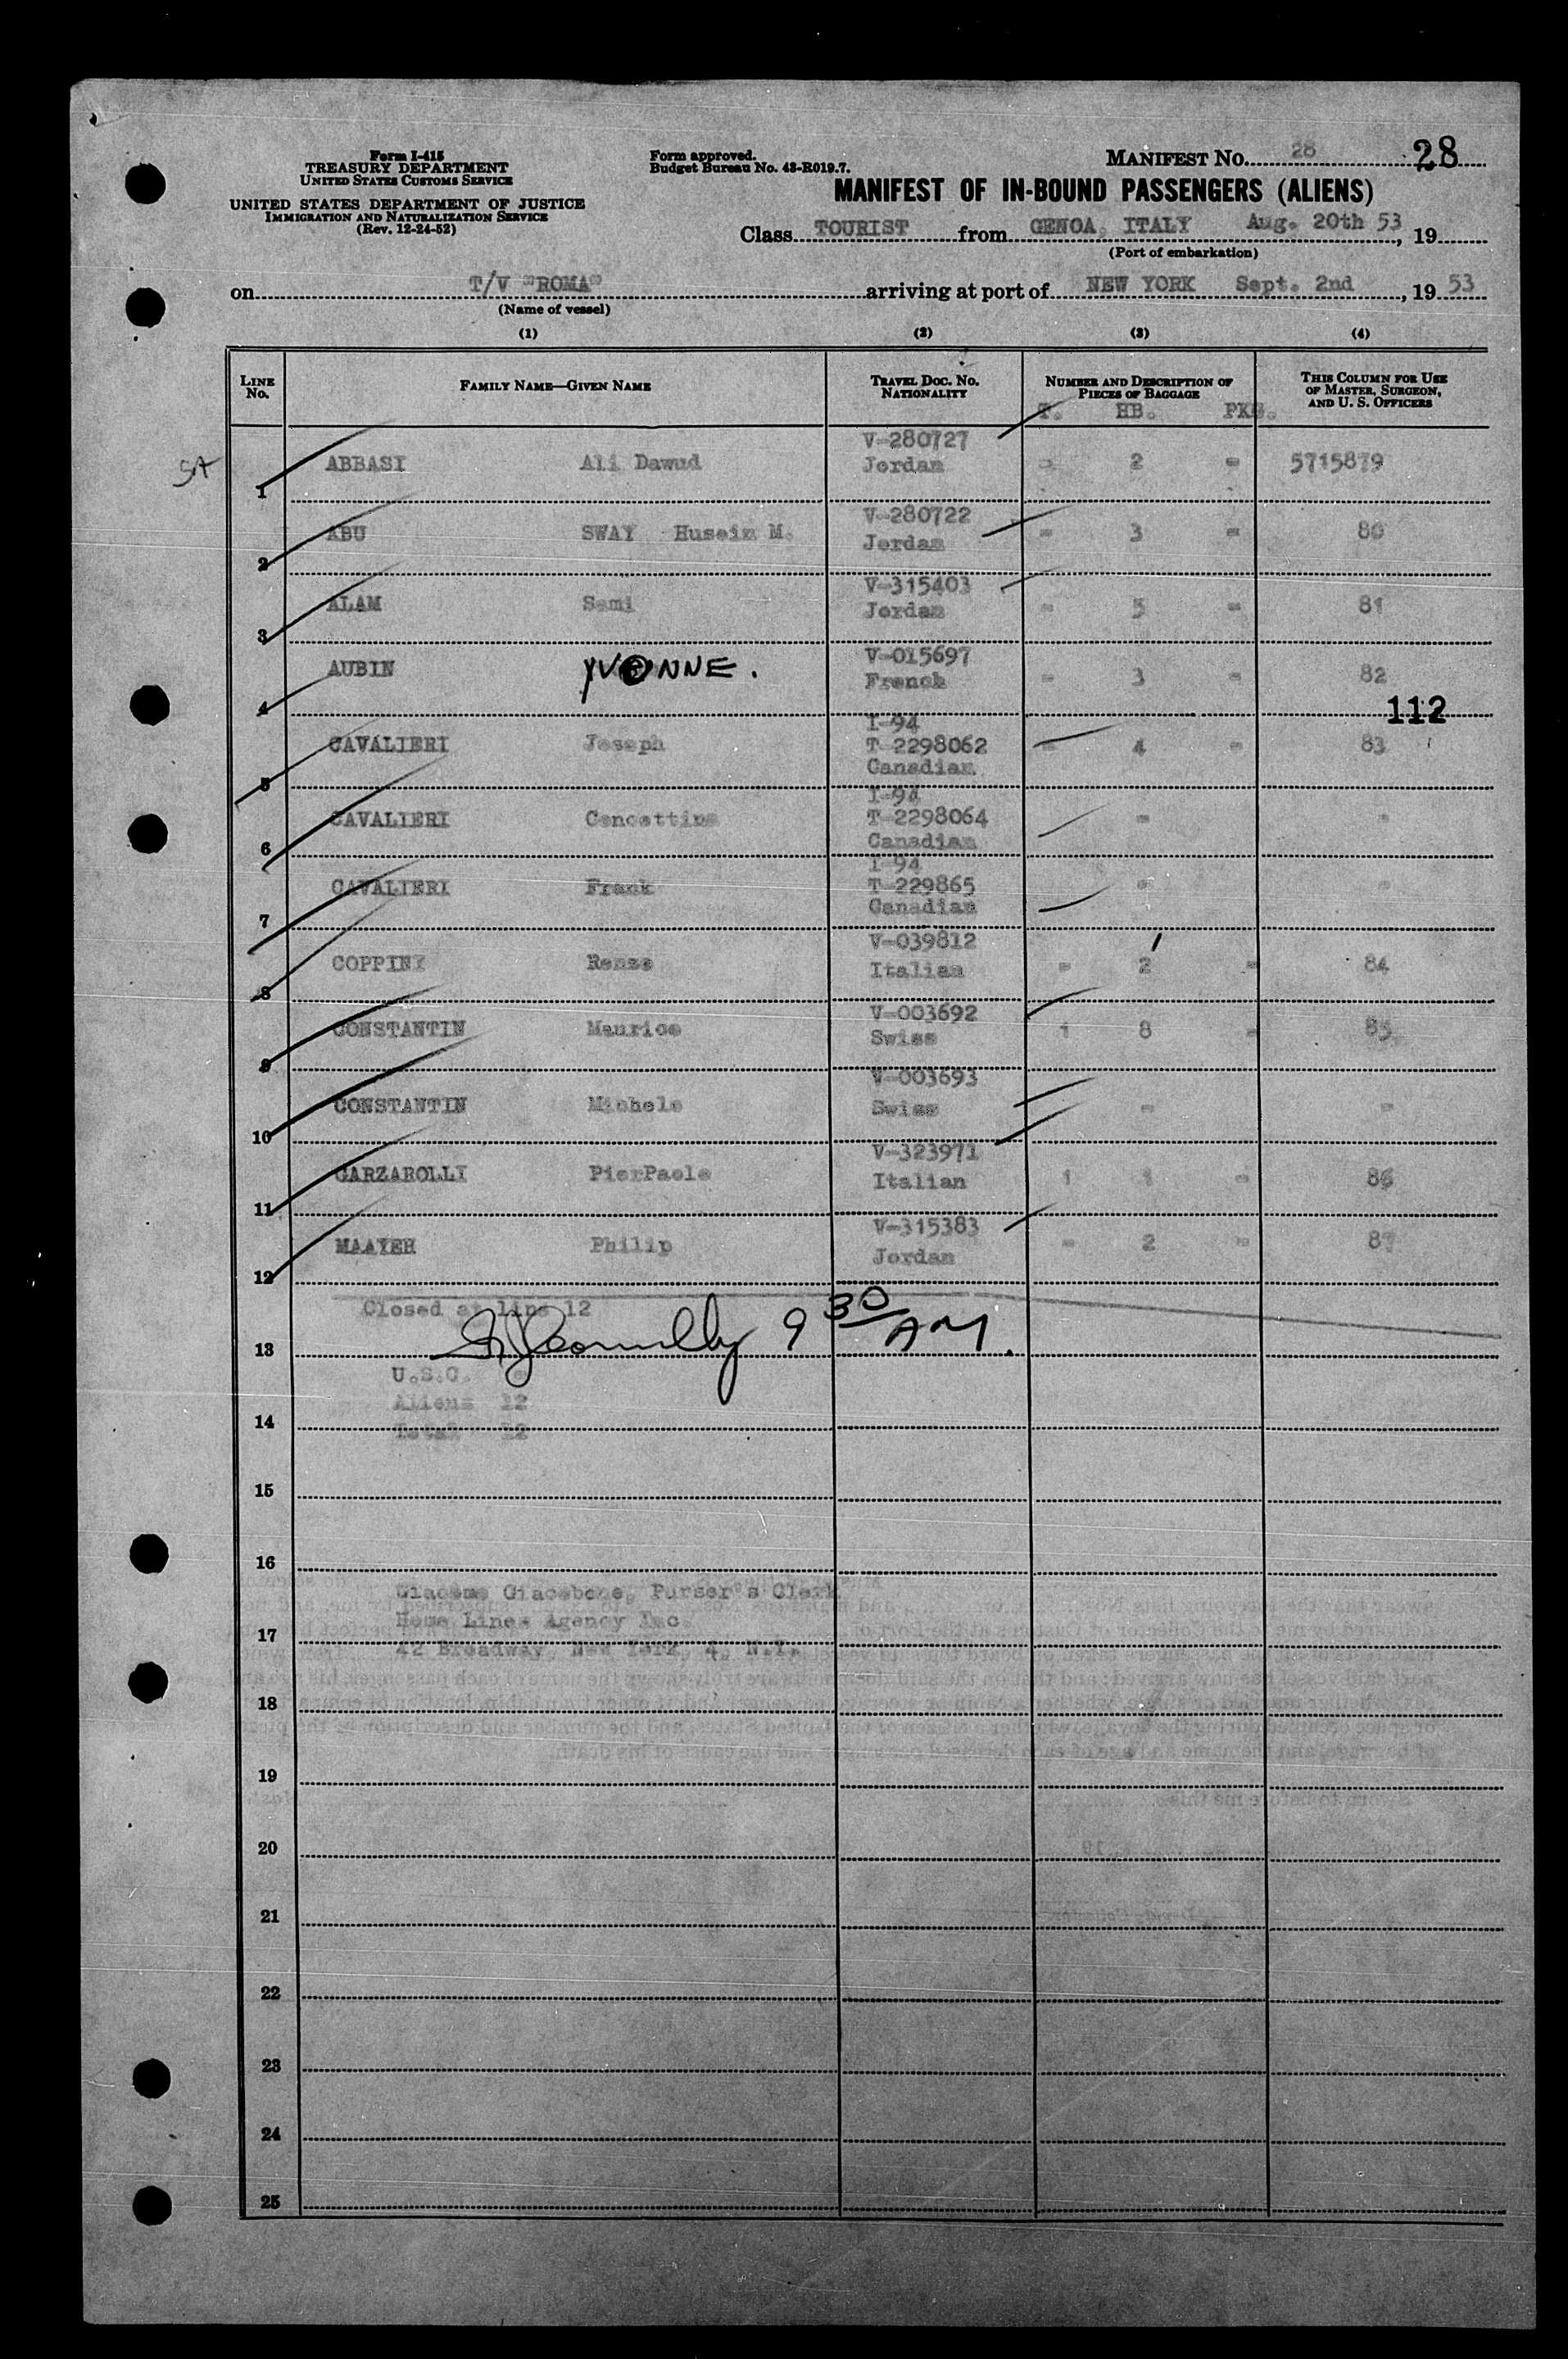 Form I-415
TREASURY DEPARTMENT
UNITED STATES CUSTOMS SERVICE
UNITED STATES DEPARTMENT OF JUSTICE
IMMIGRATION AND NATURALIZATION SERVICE
(Rev. 12-24-52)
Form approved.
Budget Bureau No. 43-R019.7.
MANIFEST NO. 28 28
MANIFEST OF IN-BOUND PASSENGERS (ALIENS)
Class TOURIST from GENOA, ITALY Aug. 20th 53, 19
(Port of embarkation)
on T/V "ROMA" arriving at port of NEW YORK Sept. 2nd, 19 53
(Name of vessel)
(1) (2) (3) (4)
LINE NO. FAMILY NAME—GIVEN NAME TRAVEL DOC. NO. NATIONALITY NUMBER AND DESCRIPTION OF PIECES OF BAGGAGE THIS COLUMN FOR USE OF MASTER, SURGEON, AND U. S. OFFICERS
T. HB. PKG.
1 ABBASI Ali Dawud V-280727 Jordan - 2 - 5715879
2 ABU SWAY Husein M. V-280722 Jordan - 3 - 80
3 ALAM Sami V-315403 Jordan - 5 - 81
4 AUBIN YVONNE. V-015697 French - 3 - 82
112
5 CAVALIERI Joseph I-94 T-2298062 Canadian - 4 - 83
6 CAVALIERI Concettina I-94 T-2298064 Canadian - -
7 CAVALIERI Frank I-94 T-229865 Canadian - -
8 COPPINI Renzo V-039812 Italian - 2 - 84
9 CONSTANTIN Maurice V-003692 Swiss 1 8 - 85
10 CONSTANTIN Michele V-003693 Swiss - -
11 GARZAROLLI PierPaolo V-323971 Italian 1 1 - 86
12 MAAYEH Philip V-315383 Jordan - 2 - 87
Closed at line 12
9 30 AM.
13
U.S.C. -
Aliens 12
14
Total 12
15
16
Giacomo Giacobone, Purser's Clerk
Home Lines Agency Inc
17
42 Broadway, New York 4, N.Y.
18
19
20
21
22
23
24
25